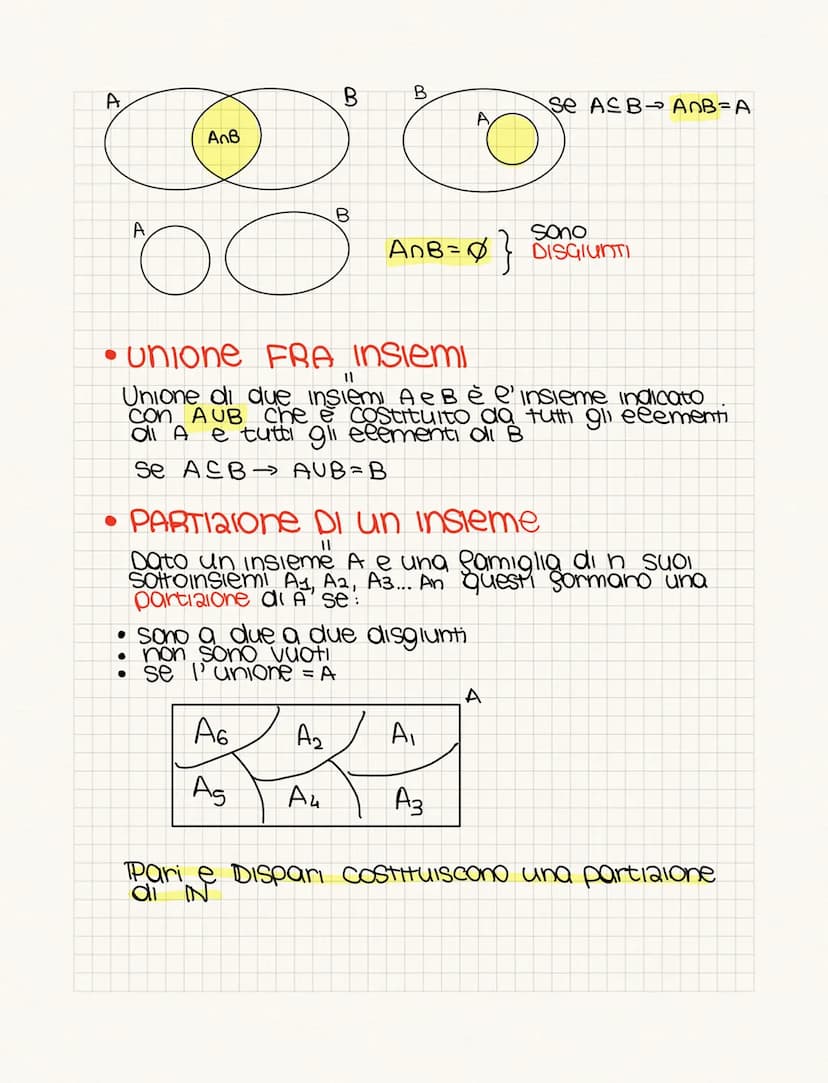 A
B
A∩B
B
A
se A⊆B→ A∩B=A
A
B
A∩B=∅ } sono
DISGIUNTI
• UNIONE FRA INSIEMI
Unione di due insiemi A e B è l'insieme indicato
con A∪B che è costituito da tutti gli elementi
di A e tutti gli elementi di B
se A⊆B→ A∪B=B
• PARTIZIONE DI UN INSIEME
Dato un insieme A e una famiglia di n suoi
sottoinsiemi A1, A2, A3... An questi formano una
partizione di A se:
• sono a due a due disgiunti
• non sono vuoti
• se l'unione = A
A
A6 A2 A1
A5 A4 A3
Pari e Dispari costituiscono una partizione
di ℕ